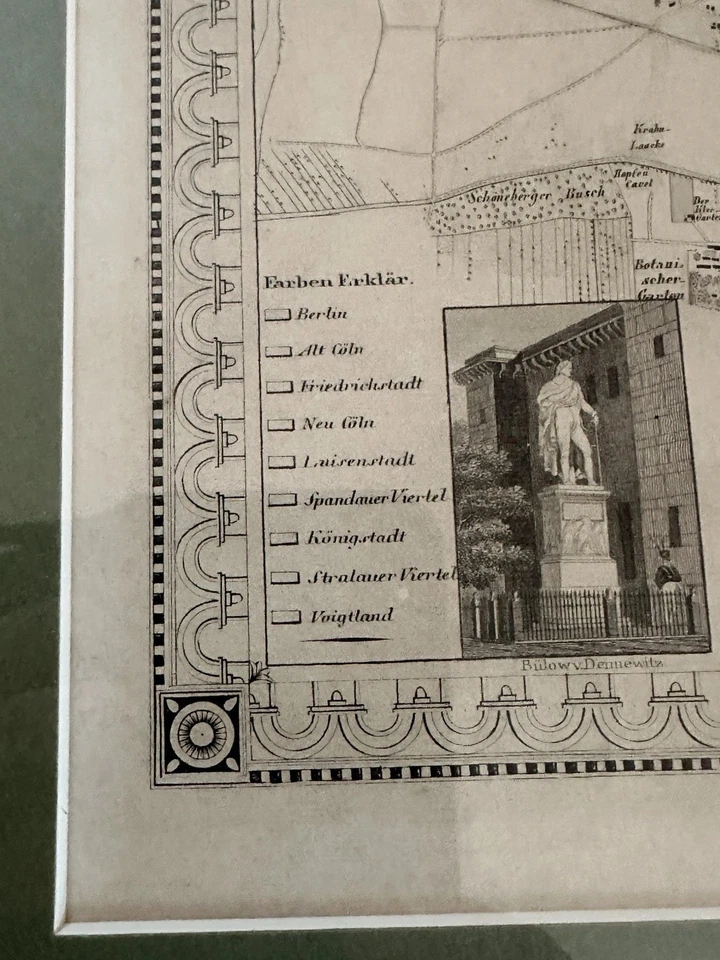 Krahn-
Laacke
Hopfen
Cavel
Schöneberger Busch
Der
Botani-
scher-
Garten
Farben Erklär.
Berlin
Alt Cöln
Friedrichstadt
Neu Cöln
Luisenstadt
Spandauer Viertel
Königstadt
Stralauer Viertel
Voigtland
Bülow v. Dennewitz